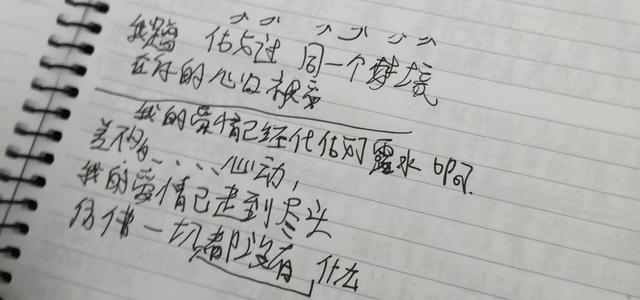 我 估占过 同一个梦境
在你的心口相爱
我的爱情已经代估对露水 啊
差不多......心动,
我的爱情已走到尽头
仿佛一切都没有什么